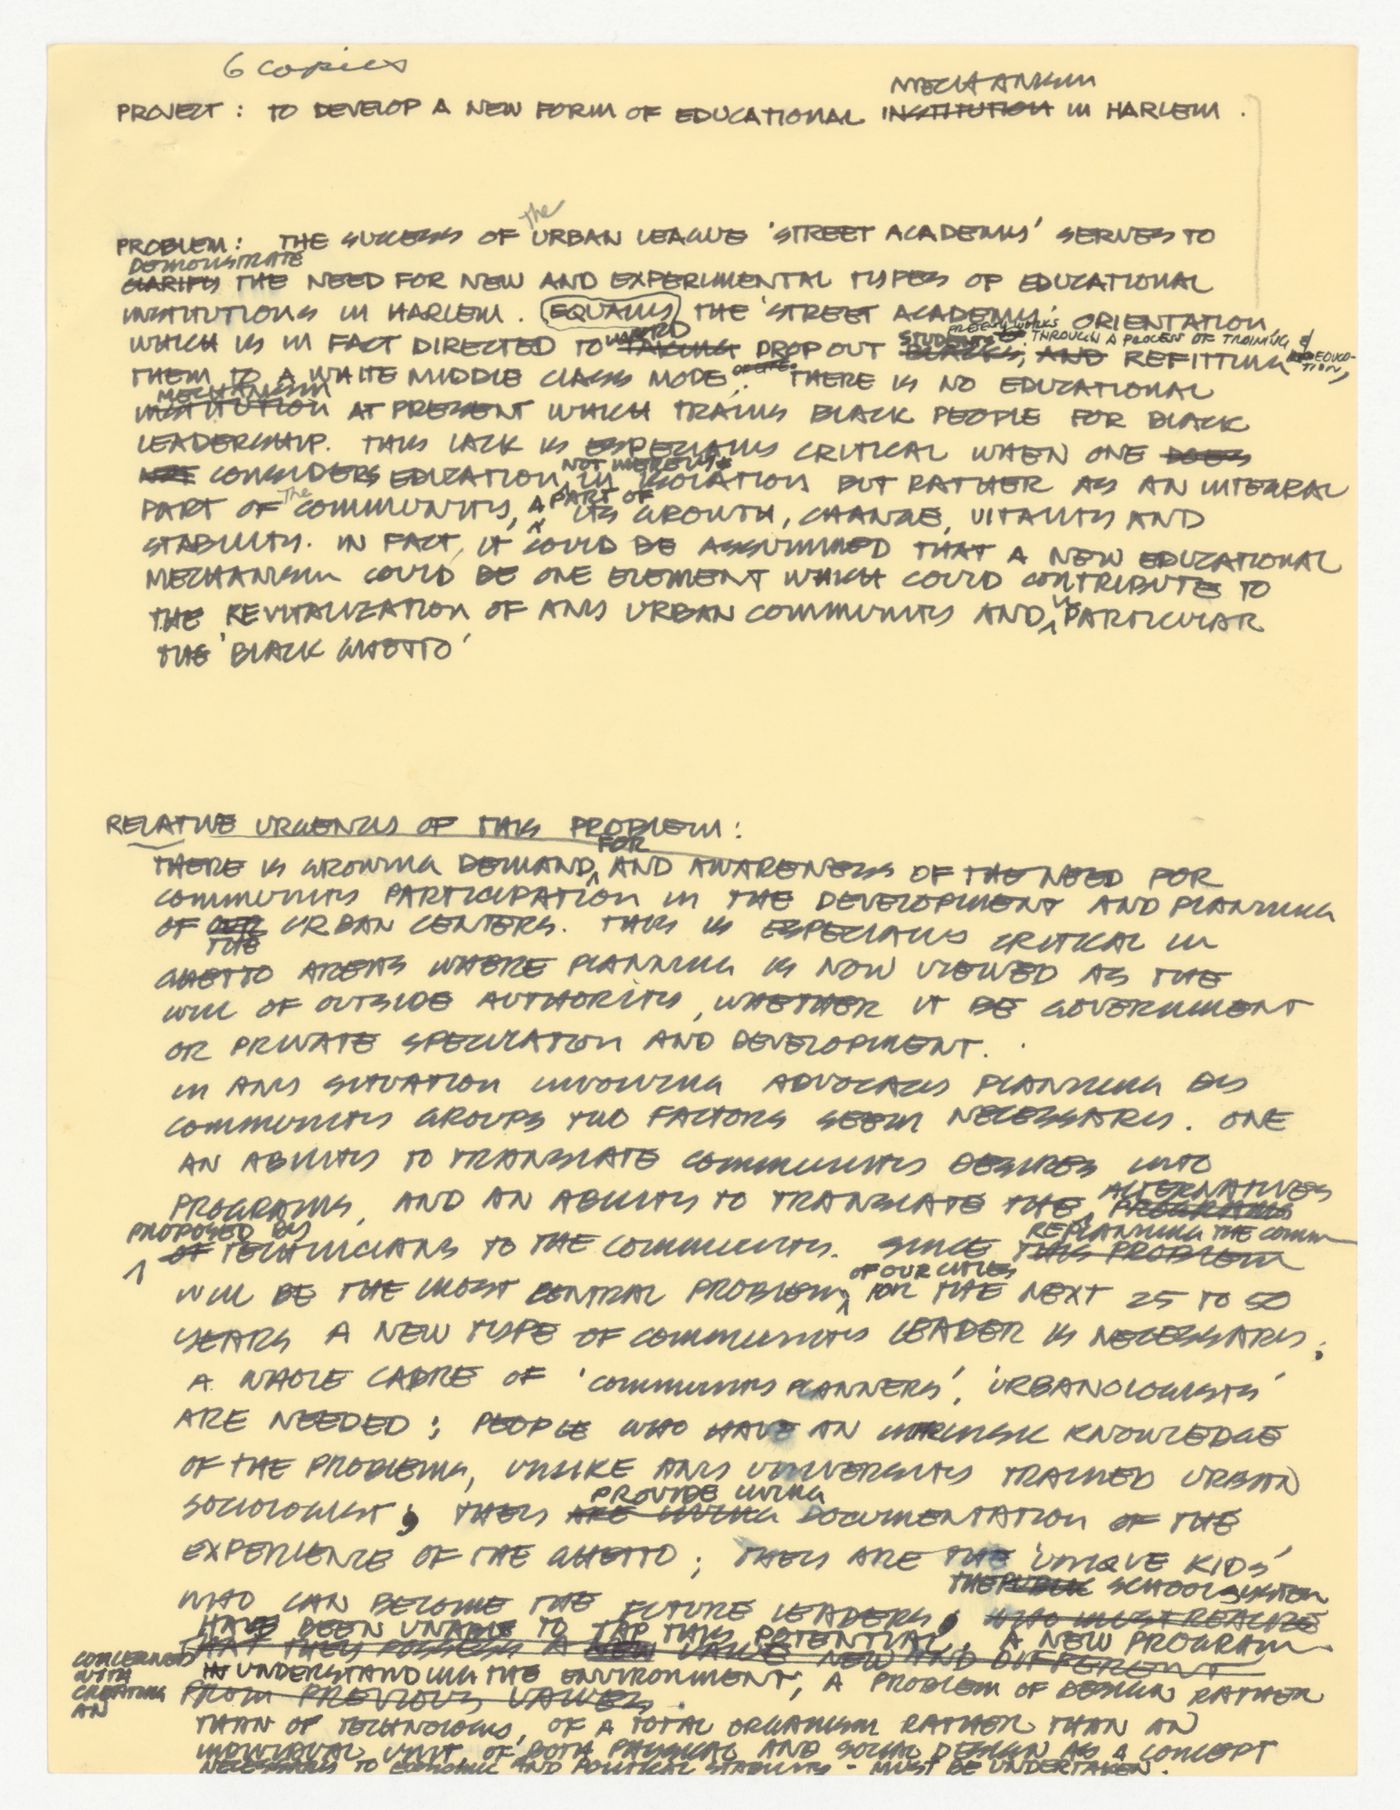 6 copies
MECHANISM
PROJECT : TO DEVELOP A NEW FORM OF EDUCATIONAL INSTITUTION IN HARLEM .
the
PROBLEM : THE SUCCESS OF URBAN LEAGUE 'STREET ACADEMYS' SERVES TO
DEMONSTRATE
CLARIFY THE NEED FOR NEW AND EXPERIMENTAL TYPES OF EDUCATIONAL
INSTITUTIONS IN HARLEM . EQUALLY THE 'STREET ACADEMYS' ORIENTATION
WHICH IS IN FACT DIRECTED TO TAKING DROP OUT BLACKS, AND REFITTING
STUDENTS THROUGH A PROCESS OF TRAINING & EDUCATION,
THEM TO A WHITE MIDDLE CLASS MODE OF LIFE. THERE IS NO EDUCATIONAL
MECHANISM
INSTITUTION AT PRESENT WHICH TRAINS BLACK PEOPLE FOR BLACK
LEADERSHIP. THIS LACK IS ESPECIALLY CRITICAL WHEN ONE DOES
NOT MERELY
NOT CONSIDERS EDUCATION, IN ISOLATION BUT RATHER AS AN INTEGRAL
The A PART OF
PART OF COMMUNITY, ITS GROWTH, CHANGE, VITALITY AND
STABILITY. IN FACT, IT COULD BE ASSUMMED THAT A NEW EDUCATIONAL
MECHANISM COULD BE ONE ELEMENT WHICH COULD CONTRIBUTE TO
IN
THE REVITALIZATION OF ANY URBAN COMMUNITY AND PARTICULAR
THE 'BLACK GHETTO'
RELATIVE URGENCY OF THIS PROBLEM :
FOR
THERE IS GROWING DEMAND, AND AWARENESS OF THE NEED FOR
COMMUNITY PARTICIPATION IN THE DEVELOPMENT AND PLANNING
OF OUR URBAN CENTERS. THIS IS ESPECIALLY CRITICAL IN
THE
GHETTO AREAS WHERE PLANNING IS NOW VIEWED AS THE
WILL OF OUTSIDE AUTHORITY, WHETHER IT BE GOVERNMENT
OR PRIVATE SPECULATION AND DEVELOPMENT.
IN ANY SITUATION INVOLVING ADVOCACY PLANNING BY
COMMUNITY GROUPS TWO FACTORS SEEM NECESSARY. ONE
AN ABILITY TO TRANSLATE COMMUNITY DESIRES INTO
ALTERNATIVES
PROGRAMS, AND AN ABILITY TO TRANSLATE THE PROGRAMS
PROPOSED BY REPLANNING THE COMM
OF TECHNICIANS TO THE COMMUNITY. SINCE THIS PROBLEM
OF OUR CITIES
WILL BE THE MOST CENTRAL PROBLEM FOR THE NEXT 25 TO 50
YEARS A NEW TYPE OF COMMUNITY LEADER IS NECESSARY;
A WHOLE CADRE OF 'COMMUNITY PLANNERS', 'URBANOLOGISTS'
ARE NEEDED ; PEOPLE WHO HAVE AN INTRINSIC KNOWLEDGE
OF THE PROBLEMS, UNLIKE ANY UNIVERSITY TRAINED URBAN
PROVIDE LIVING
SOCIOLOGIST ; THEY ARE LIVING DOCUMENTATION OF THE
EXPERIENCE OF THE GHETTO ; THEY ARE THE 'UNIQUE KIDS'
THE PUBLIC SCHOOL SYSTEM
WHO CAN BECOME THE FUTURE LEADERS, WHO MUST REALIZE
HAVE BEEN UNABLE TO TAP THIS POTENTIAL. A NEW PROGRAM
THAT THEY POSSESS A NEW VALUE NEW AND DIFFERENT
CONCERNED WITH CREATING AN
IN UNDERSTANDING THE ENVIRONMENT, A PROBLEM OF DESIGN RATHER
FROM PREVIOUS VALUES.
THAN OF TECHNOLOGY, OF A TOTAL ORGANISM RATHER THAN AN
INDIVIDUAL UNIT, OF BOTH PHYSICAL AND SOCIAL DESIGN AS A CONCEPT
NECESSARY TO ECONOMIC AND POLITICAL STABILITY - MUST BE UNDERTAKEN.